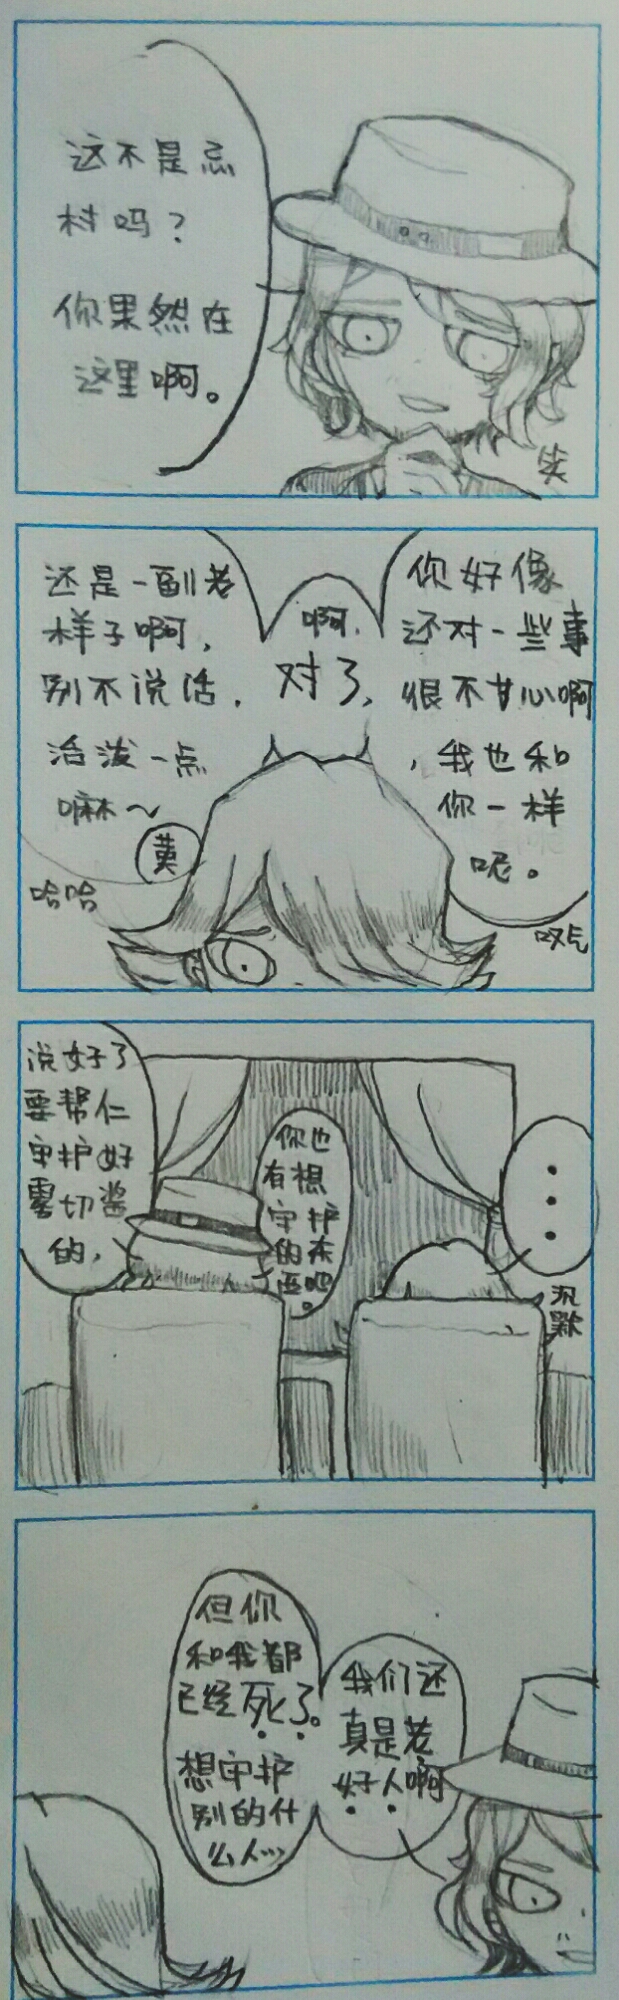 这不是忌
村吗？
你果然在
这里啊。
笑
还是一副老
样子啊，
别不说话，
活泼一点
嘛～
黄
哈哈
啊，
对了，
你好像
还对一些事
很不甘心啊
，我也和
你一样
呢。
叹气
说好了
要帮仁
守护好
雾切酱
的，
你也
有想
守护
的东
西吧。
...
沉默
但你
和我都
已经死了。
想守护
别的什
么人…
我们还
真是老
好人啊